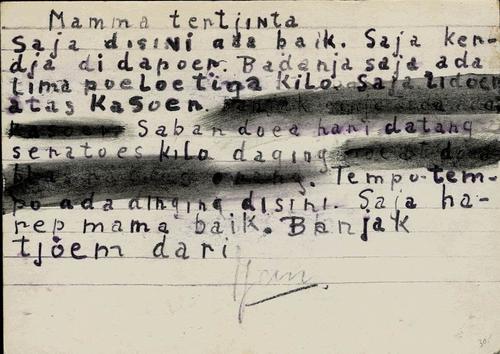 Mamma tertjinta
Saja disini ada baik. Saja ker-
dja di dapoer. Badanja saja ada
lima poeloe tiga kilo. Saja tidoer
atas kasoer.
Saban doea hari datang
seratoes kilo daging
orang. Tempo-tem-
po ada dinging disini. Saja ha-
rep mama baik. Banjak
tjoem dari
30